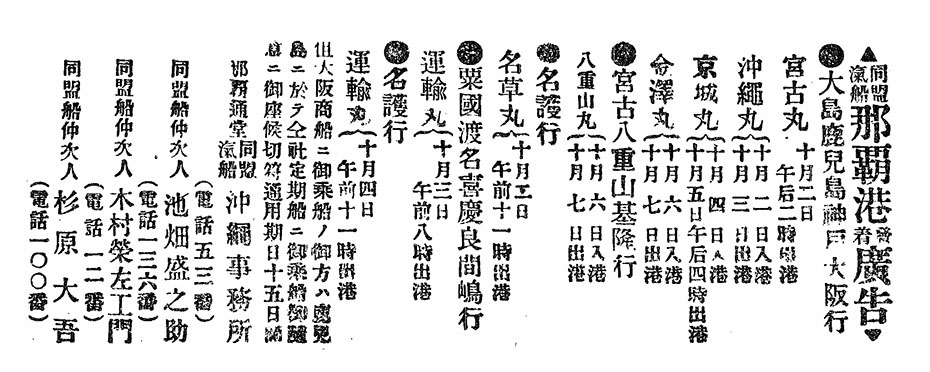 ▲同盟汽船那覇港發着廣告▼
●大島鹿兒島神戸大阪行
宮古丸 十月二日午后二時出港
沖繩丸 十月二日入港
十月三日出港
京城丸 十月四日入港
十月五日午后四時出港
金澤丸 十月六日入港
十月七日出港
●宮古八重山基隆行
八重山丸 十月六日入港
十月七日出港
●名護行
名草丸 十月二日午前十一時出港
●粟國渡名喜慶良間嶋行
運輸丸 十月三日午前八時出港
●名護行
運輸丸 十月四日午前十一時出港
但大阪商船ニ御乘船ノ御方ハ鹿兒
島ニ於テ仝社定期船ニ御乘船御隨
意ニ御座候切符通用期日十五日間
那覇通堂 同盟汽船 沖繩事務所
(電話五三番)
同盟船仲次人 池畑盛之助
(電話一三六番)
同盟船仲次人 木村榮左工門
(電話一二番)
同盟船仲次人 杉原大吾
(電話一〇〇番)